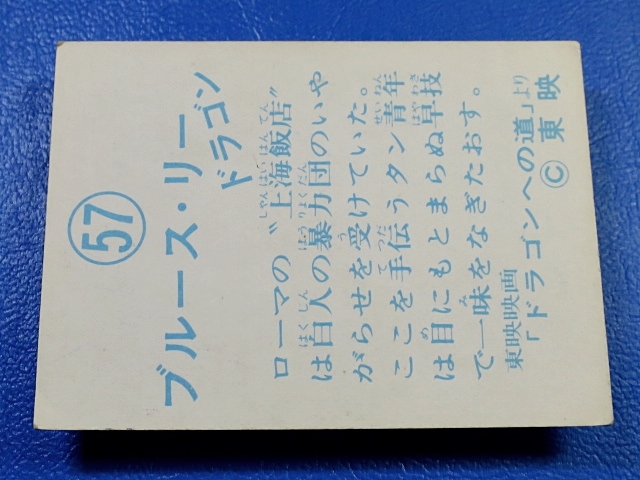 57
ブルース・リー
ドラゴン
ローマの〝上海飯店〟
は白人の暴力団のいや
がらせを受けていた。
ここを手伝うタン青年
は目にもとまらぬ早技
で一味をなぎたおす。
東映映画
「ドラゴンへの道」より
©東映